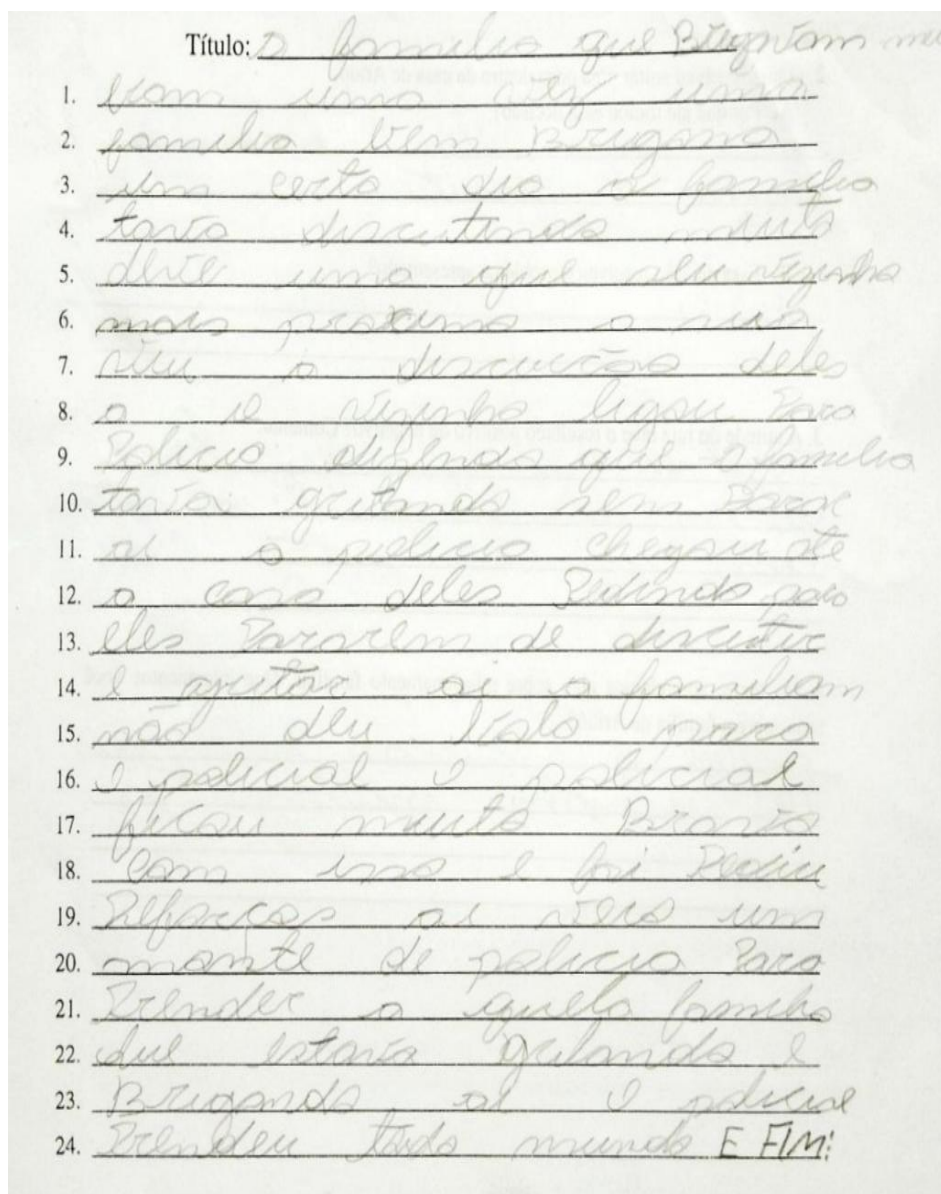 Título: A familia que Brigavam mu
1. Eram uma vez uma
2. familia bem Brigona
3. um certo dia a familia
4. tava discutindo muito
5. deste uma que seu vizinho
6. mais proximo a sua
7. viu a discurção deles
8. a o vizinho ligou Para
9. Policia dizendo que a familia
10. tava gritando sem Parar
11. ai a policia chegou ate
12. a casa deles Pedindo para
13. eles Pararem de discutir
14. e gritar ai a familiam
15. não deu bola para
16. o policial o policial
17. ficou muito Bravo
18. Com isso e foi Pediu
19. Reforços ai veio um
20. monte de policia Para
21. Prender a aquela familia
22. que estava gritando e
23. Brigando ai o policial
24. Prendeu todo mundo E FIM: